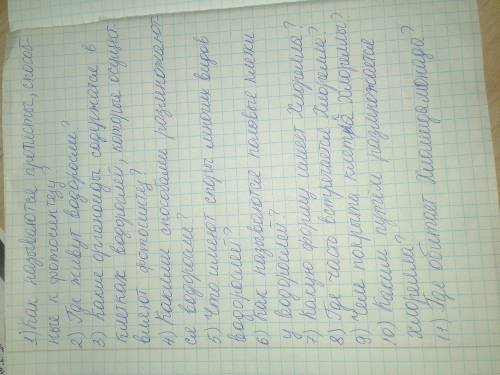 1) Как называются протисты, способ-
ные к фотосинтезу?
2) Где живут водоросли?
3) Какие органоиды содержатся в
клетках водорослей, которые осущест
вляют фотосинтез?
4) Какими способами размножают
ся водоросли?
5) Что имеют споры многих видов
водорослей?
6) Как называются половые клетки
у водорослей?
7) Какую форму имеет Хлорелла?
8) Где часто встречается Хлорелла?
9) Чем покрыта клетка Хлореллы?
10) Каким путём размножается
хлорелла?
11) Где обитает Хламидомонада?